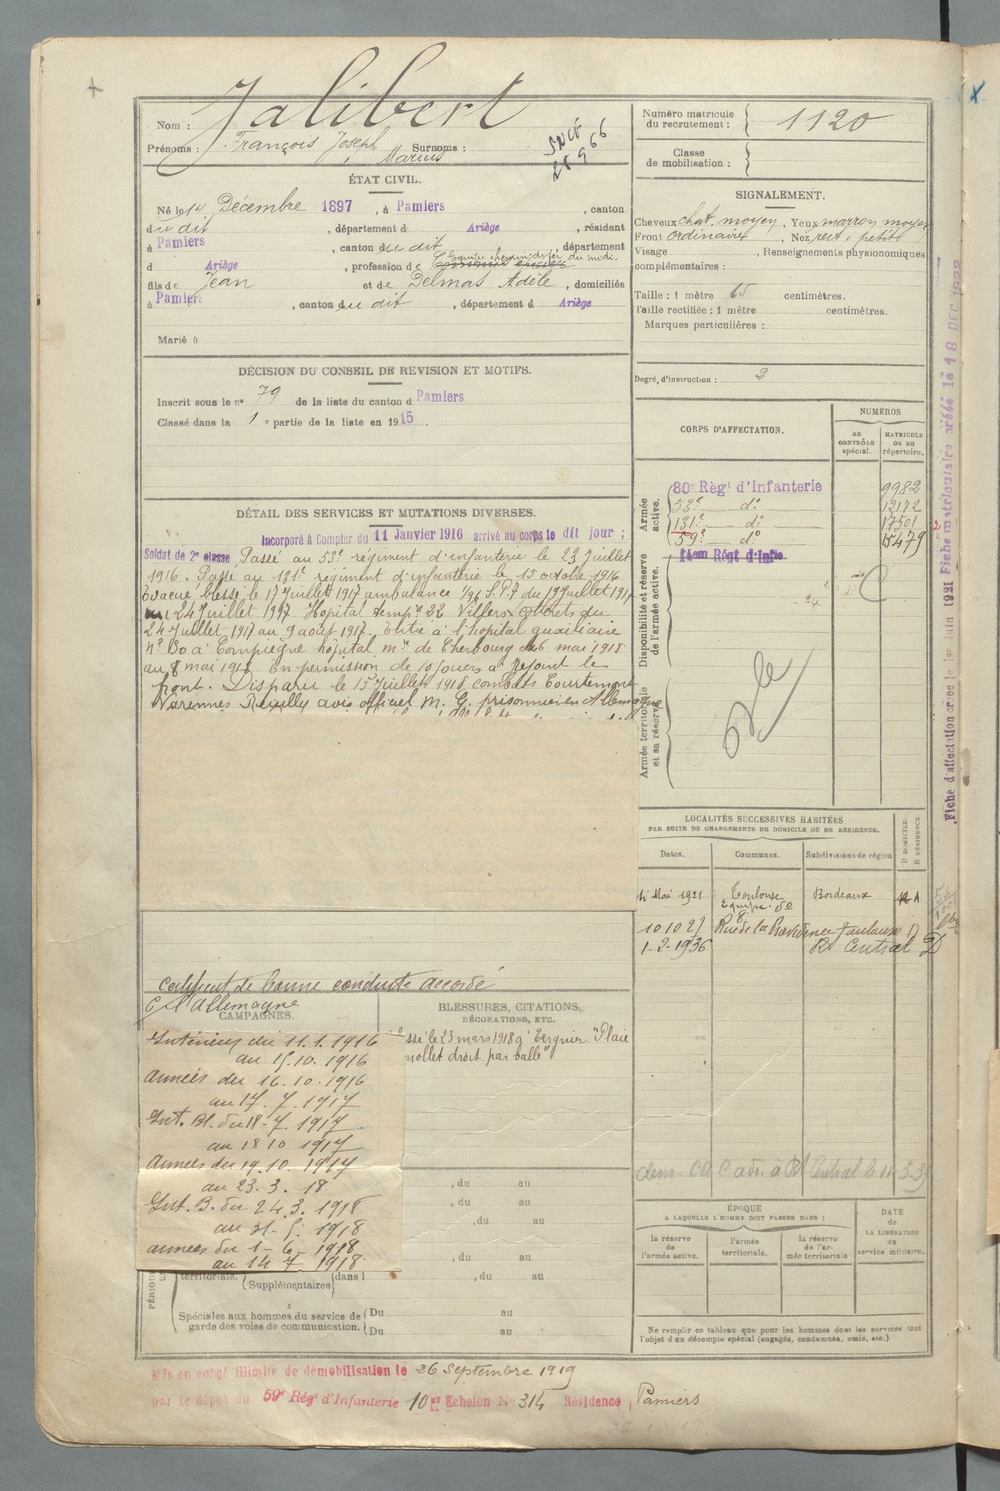 Nom : Jalibert
Prénoms : François Joseph Surnoms :
Marius
ÉTAT CIVIL.
Né le 14 Décembre 1897, à Pamiers, canton
du dit, département d Ariège, résidant
à Pamiers, canton du dit, département
d Ariège, profession de Équipe chemins de fer du midi.
fils de Jean et de Delmas Adèle, domiciliés
à Pamiers, canton du dit, département d Ariège
Marié à
DÉCISION DU CONSEIL DE REVISION ET MOTIFS.
Inscrit sous le n° 79 de la liste du canton d Pamiers
Classé dans la 1e partie de la liste en 1915.
DÉTAIL DES SERVICES ET MUTATIONS DIVERSES.
Incorporé à Compter du 11 Janvier 1916 arrivé au corps le dit jour ;
Soldat de 2e classe Passé au 53e régiment d'infanterie le 23 Juillet
1916. Passé au 131e régiment d'infanterie le 15 octobre 1916
Evacué blessé le 17 Juillet 1917 ambulance du 19 Juillet 1917
au 24 Juillet 1917 Hôpital temp.re 22 Villers du
24 Juillet 1917 au 9 août 1917. Entré à l'hopital auxiliaire
N° 130 à Compiègne hôpital m.re de Cherbourg 6 mai 1918
au 8 mai 1918. En permission de 10 jours a rejoint le
front. Disparu le 15 Juillet 1918 combats Courtemont
Varennes Reuilly avis officiel M. G. prisonnier en Allemagne
Certificat de bonne conduite accordé
C/ l'Allemagne
CAMPAGNES.
Intérieur du 11.1.1916
au 15.10.1916
Armées du 16.10.1916
au 17.7.1917
Int. Bl. du 18-7.1917
au 18 10 1917
Armées du 19.10.1917
au 23.3.18
Int. B. du 24.3.1918
au 31.5.1918
armées du 1-6-1918
au 14 7 1918
BLESSURES, CITATIONS,
DÉCORATIONS, ETC.
ssé le 23 mars 1918 à Tergnier "Plaie
mollet droit par balle"
, du au
, du au
, du au
, du au
territoriale. Supplémentaires dans l , du au
Spéciales aux hommes du service de Du au
garde des voies de communication. Du au
Mis en congé illimité de démobilisation le 26 Septembre 1919
par le dépôt du 59e Régt d'Infanterie 10e Echelon N° 314 Résidence Pamiers
Numéro matricule
du recrutement : 1120
Classe
de mobilisation :
SIGNALEMENT.
Cheveux chat. moyen, Yeux marron moyen
Front ordinaire, Nez rect. petit
Visage , Renseignements physionomiques
complémentaires :
Taille : 1 mètre 65 centimètres.
Taille rectifiée : 1 mètre centimètres.
Marques particulières :
Degré d'instruction : 3
CORPS D'AFFECTATION.
NUMÉROS
AU CONTRÔLE spécial.
MATRICULE OU AU répertoire.
Armée active.
80e Régt d'Infanterie 9982
53e d° 12172
131e d° 17501
59e d° 15479
14em Régt d'Infie
Disponibilité et réserve de l'armée active.
Armée territoriale et sa réserve
LOCALITÉS SUCCESSIVES HABITÉES
PAR SUITE DE CHANGEMENTS DE DOMICILE OU DE RÉSIDENCE.
Dates. Communes. Subdivisions de région D DOMICILE. R RÉSIDENCE.
Mai 1921 Toulouse Bordeaux
10 10 27 8 Rue de la Providence Toulouse D
1-2-1936 Rt Central D
ÉPOQUE
A LAQUELLE L'HOMME DOIT PASSER DANS :
la réserve de l'armée active.
l'armée territoriale.
la réserve de l'armée territoriale
DATE DE LA LIBÉRATION du service militaire.
Ne remplir ce tableau que pour les hommes dont les services font
l'objet d'un décompte spécial (engagés, condamnés, omis, etc.)
Fiche d'affectation créée le 1er Juin 1921 Fiche matriculaire créée le 18 DEC 1922